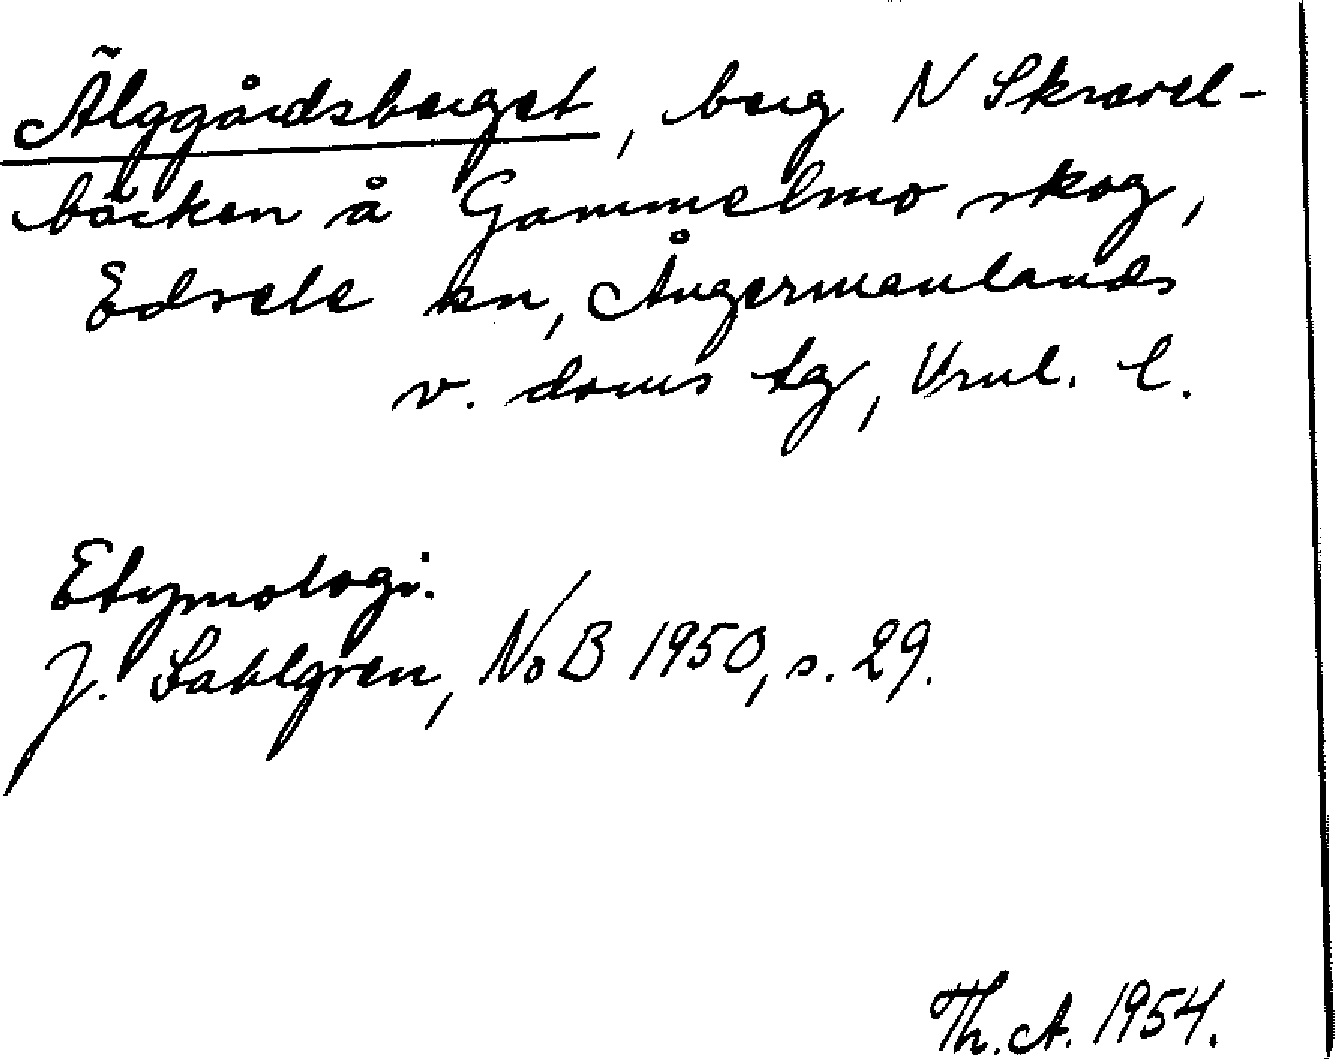 Älggårdsberget, berg N Skravel-
bäcken å Gammelmo skog,
Edsele sn, Ångermanlands
v. doms tg, Vrnl. l.
Etymologi.
J. Sahlgren, NoB 1950, s. 29.
Th. A. 1954.